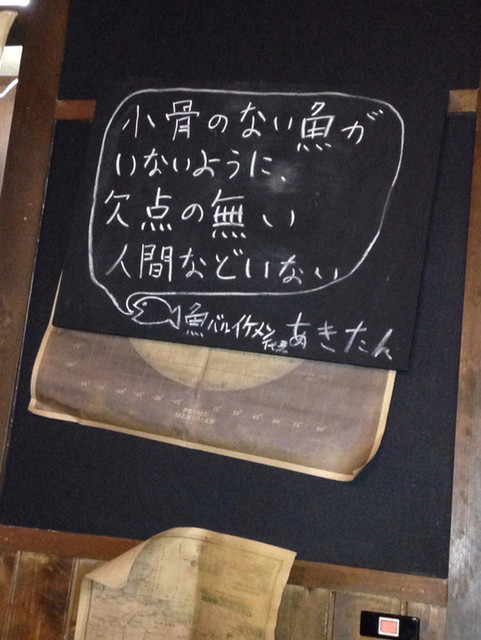 小骨のない魚が
いないように、
欠点の無い
人間などいない
魚バルイケメン代表 あきたん
PRIME
MERIDIAN